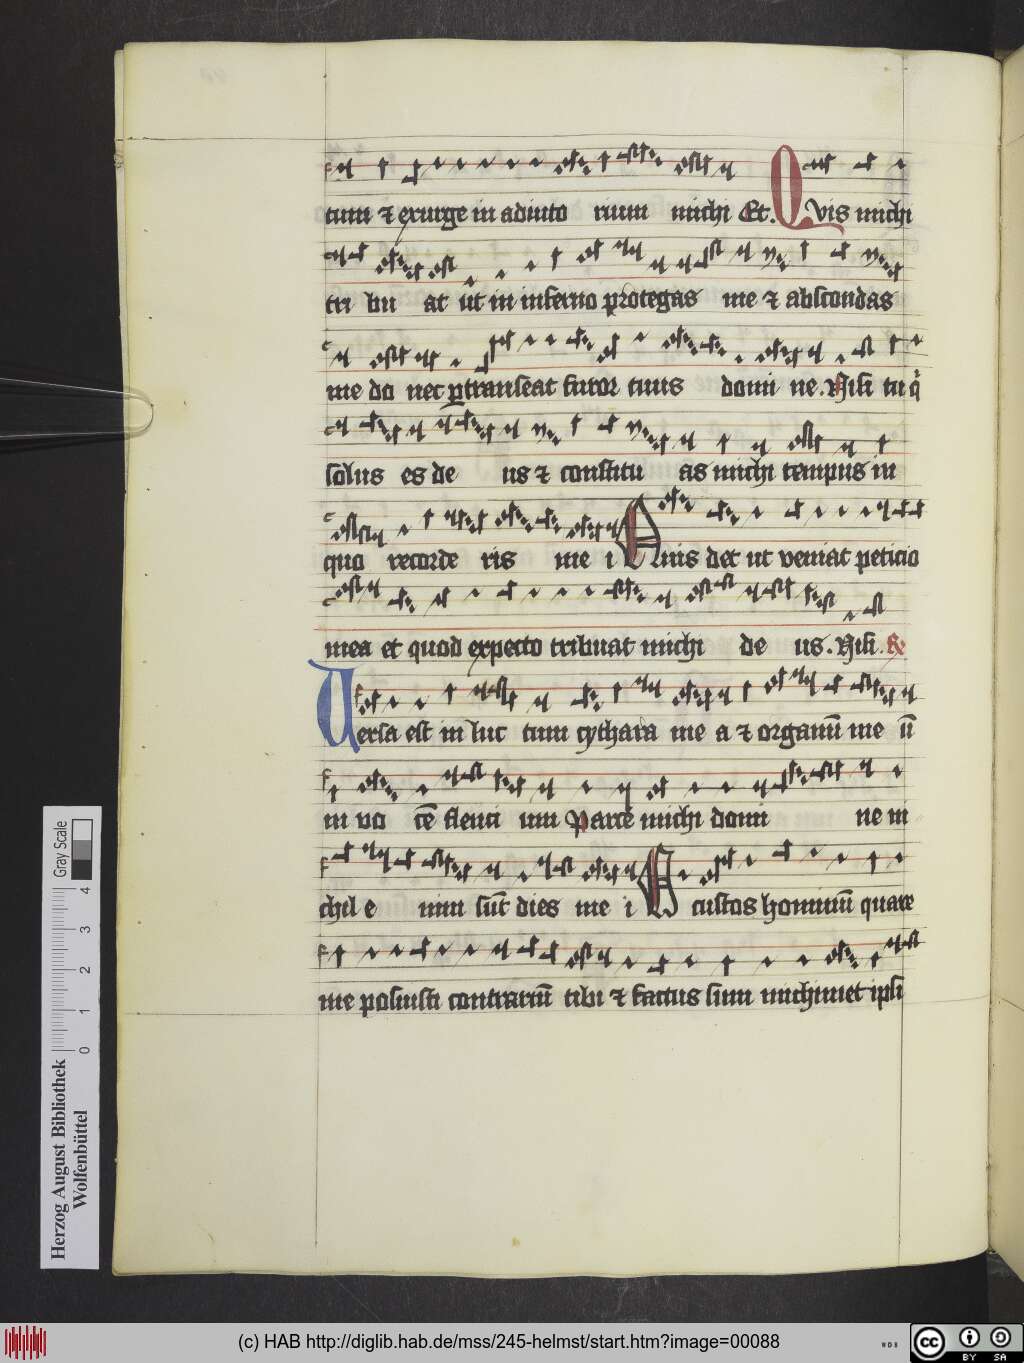 tuum ⁊ exurge in adiuto rium michi Et. Quis michi
tri bu at ut in inferno protegas me ⁊ abscondas
me do nec ꝑtranseat furor tuus domi ne. Nisi tu qͥ
solus es de us ⁊ constitu as michi tempus in
quo recorde ris me i Quis det ut veniat peticio
mea et quod expecto tribuat michi de us. Nisi. ℟
Uersa est in luc tum cythara me a ⁊ organū me ū
in vo cē flenti um Parce michi domi ne ni
chil e nim sūt dies me i O custos hominū quare
me posuisti contrariū tibi ⁊ factus sum michimet ipsi
Herzog August Bibliothek
Wolfenbüttel
0 1 2 3 4
Gray Scale
(c) HAB http://diglib.hab.de/mss/245-helmst/start.htm?image=00088
WDB
cc BY SA